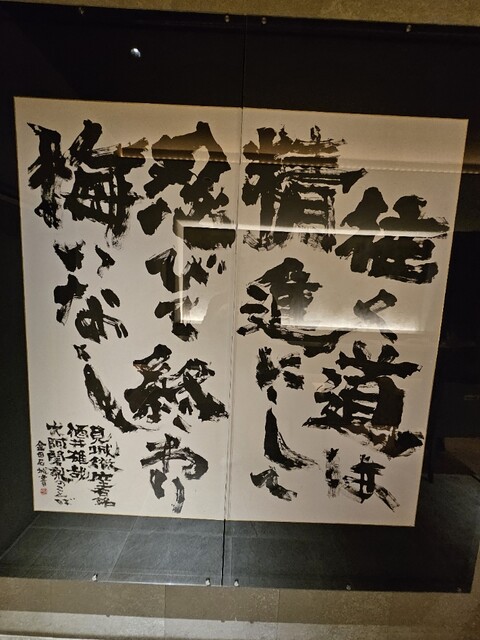 往く道は
精進にして
忍びて終わり
悔いなし
見城徹座右銘
酒井雄哉
大阿闍梨のことば
金田石城書